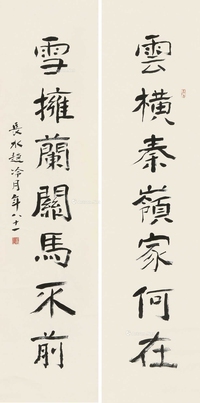 雲橫秦嶺家何在
雪擁蘭關馬不前
長水趙冷月年八十一